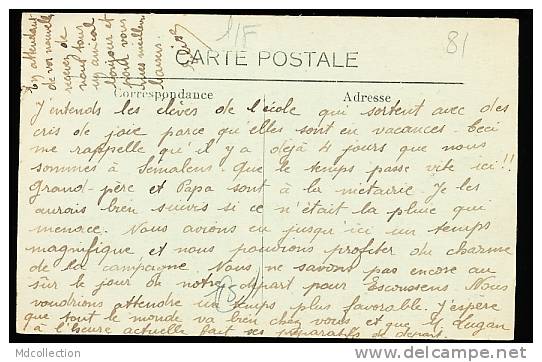 En attendant
de vos nouvelles
recevez de
nous tous
un amical
bonjour et
pour vous
mes meilleurs
baisers
1F
81
CARTE POSTALE
Correspondance
Adresse
J'entends les élèves de l'école qui sortent avec des
cris de joie parce qu'elles sont en vacances. Ceci
me rappelle qu'il y a déjà 4 jours que nous
sommes à Sémalens. Que le temps passe vite ici!!
Grand-père et Papa sont à la métairie. Je les
aurais bien suivis si ce n'était la pluie qui
menace. Nous avions eu jusqu'ici un temps
magnifique et nous pouvions profiter du charme
de la campagne. Nous ne savons pas encore au
sûr le jour de notre départ pour Escoussens. Nous
voudrions attendre un temps plus favorable. J'espère
que tout le monde va bien chez vous et que M. Lugan
à l'heure actuelle fait ses préparatifs de départ.
Mdcollection
www.delcampe.net